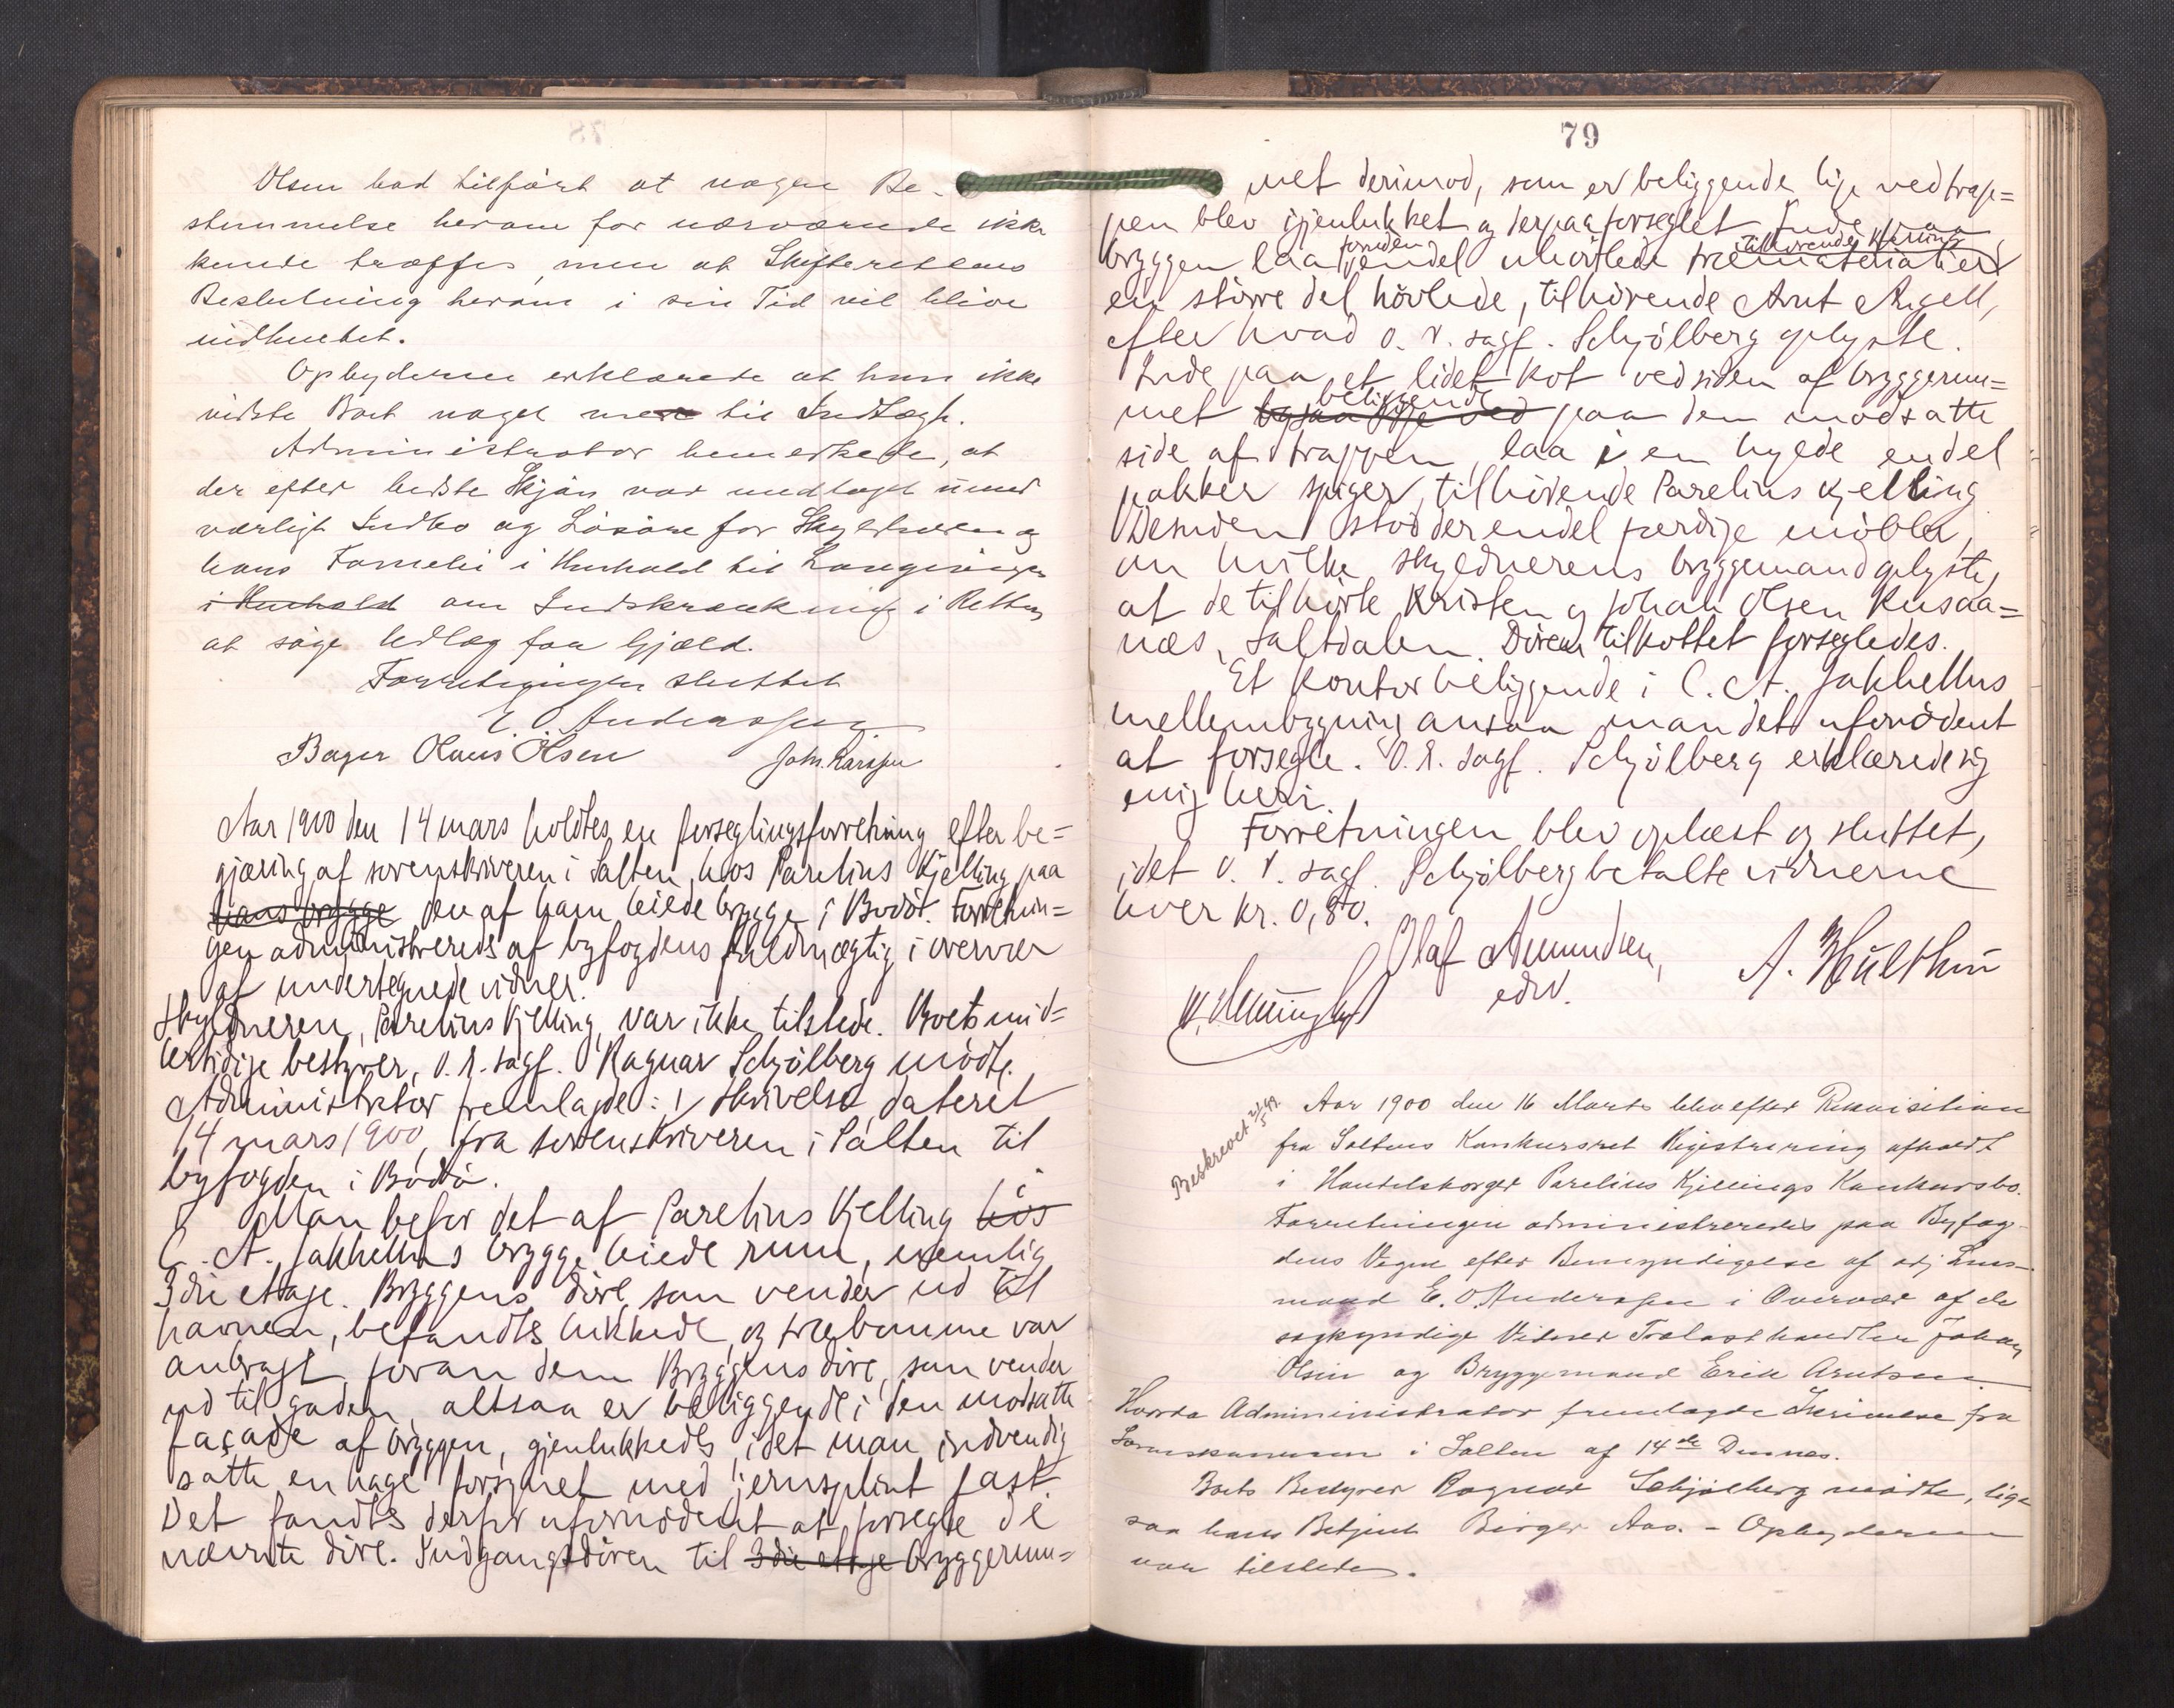 Olsen bad tilført at nogen Be-
stemmelse herom for nærværende ikke
kunde træffes, men at Skifterettens
Beslutning herom i sin Tid vil blive
indhentet.
Opbyderen erklærede at hun ikke
vidste Boet noget mere til Indtægt.
Administrator bemerkede, at
der efter bedste Skjøn var undtaget
værligt Indbo og Løsøre for Skyldneren og
hans Familie i Henhold til Lovgivningen
i Henhold om Indskrænkning i Retten
at søge Udlæg for Gjæld.
Forretningen sluttet
E. O. Anderssen
Bager Olaus Olsen Joh. Larssen
Aar 1900 den 14 mars holdtes en forseglingsforretning efter be=
gjæring af sorenskriveren i Salten hos Parelius Kjelling paa
hans brygge den af ham leiede brygge i Bodø. Forretnin=
gen administreredes af byfogdens fuldmægtig i overvær
af undertegnede vidner.
Skyldneren, Parelius Kjelling, var ikke tilstede. Boets mid=
lertidige bestyrer, o. r. sagf. Ragnar Schjølberg mødte.
Administrator fremlagde: 1/ skrivelse dateret
14 mars 1900, fra sorenskriveren i Salten til
byfogden i Bodø.
Man befor det af Parelius Kjelling hos
C. A. Jakhellns brygge leiede rum, nemlig
3die etage. Bryggens døre, som vender ud til
havnen, befandtes lukkede, og træbomme var
anbragt foran dem. Bryggens døre, som vender
ud til gaden, altsaa er beliggende i den modsatte
façade af bryggen, gjenlukkedes, idet man indvendig
satte en hage forsynet med jernsplint fast.
Det fandtes derfor ufornødent at forsegle de
nævnte døre. Indgangsdøren til 3die etage bryggerum=
79
met derimod, som er beliggende lige ved trap=
pen blev igjenlukket og derpaa forseglet. Inde paa
bryggen laa foruden endel uhøvlede træmaterialier tilhørende Kjelling
en større del høvlede, tilhørende Arnt Angell,
efter hvad o. r. sagf. Schjølberg oplyste.
Inde paa et lidet kot ved siden af bryggerum=
met ligesaa lige ved beliggende paa den modsatte
side af trappen, laa i en hylde endel
pakker spiger, tilhørende Parelius Kjelling
Desuden stod der endel færdige møbler,
om hvilke skyldnerens bryggemand oplyste,
at de tilhørte Kristen og Johan Olsen Rusaa=
næs, Saltdalen. Døren til kottet forsegledes.
Et kontor beliggende i C. A. Jakhellns
mellembygning ansaa man det ufornødent
at forsegle. O. r. sagf. Schjølberg erklærede sig
enig heri.
Forretningen blev oplæst og sluttet,
idet o. r. sagf. Schjølberg betalte vidnerne
hver kr. 0,80.
Olaf Amundsen, A. Hulthin
edsv.
Beskrevet
Aar 1900 den 16 Marts blev efter Rekvisition
fra Saltens Konkursret Registrering afholdt
i Handelsborger Parelius Kjellings Konkursbo.
Forretningen administreredes paa Byfog-
dens Vegne efter Bemyndigelse af adj. Lens-
mand E. O. Anderssen i Overvær af de
sagkyndige Vidner Trælasthandler Johan
Olsen og Bryggemand Erik Arntsen.
Hvorda Admininistrator fremlagde Skrivelse fra
Sorenskriveren i Salten af 14de Dennes.
Boets Bestyrer Ragnar Schjølberg mødte, lige
saa hans Betjent Birger Aas. - Opbyderen
var tilstede.